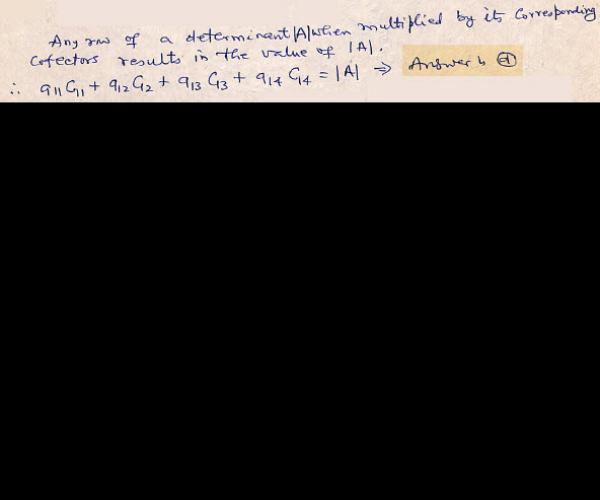 Any row of a determinant |A| when multiplied by its Corresponding
Cofectors results in the value of |A|.
∴ a11 C11 + a12 C12 + a13 C13 + a14 C14 = |A| ⇒ Answer is ⓓ